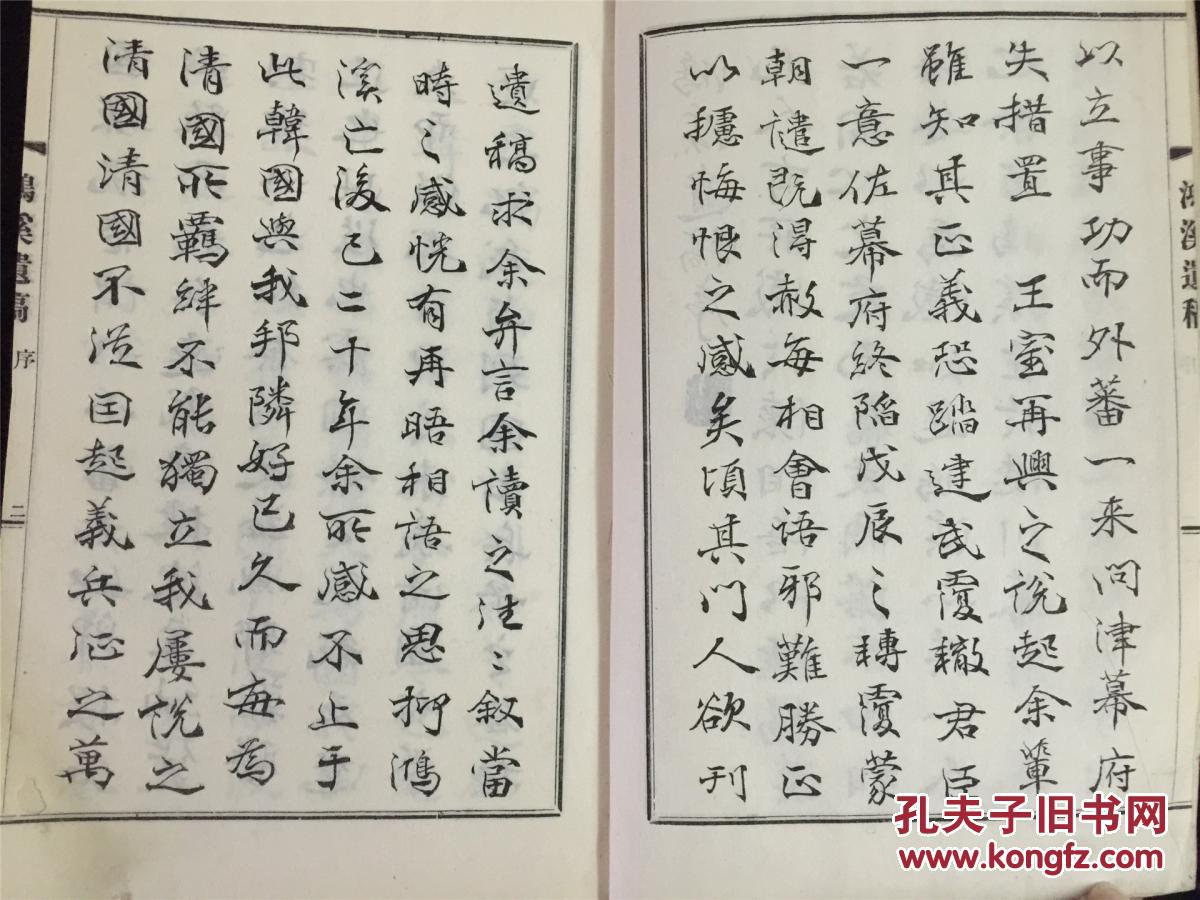 以立事功而外蕃一来問津幕府
失措置王室再興之説起余輩
雖知其正義恐踏建武覆轍君臣
一意佐幕府終陥戊辰之轉覆蒙
朝譴既得赦毎相會語邪難勝正
以攄悔恨之感矣頃其門人欲刊
遺稿求余弁言余讀之往々叙當
時之感恍有再晤相語之思抑鴻
溪亡後已二十年余所感不止于
此韓國與我邦隣好已久而毎為
清國所羈絆不能獨立我屢説之
清國清國不從因起義兵征之萬
鴻溪遺稿
鴻溪遺稿 序 二
孔夫子旧书网
www.kongfz.com